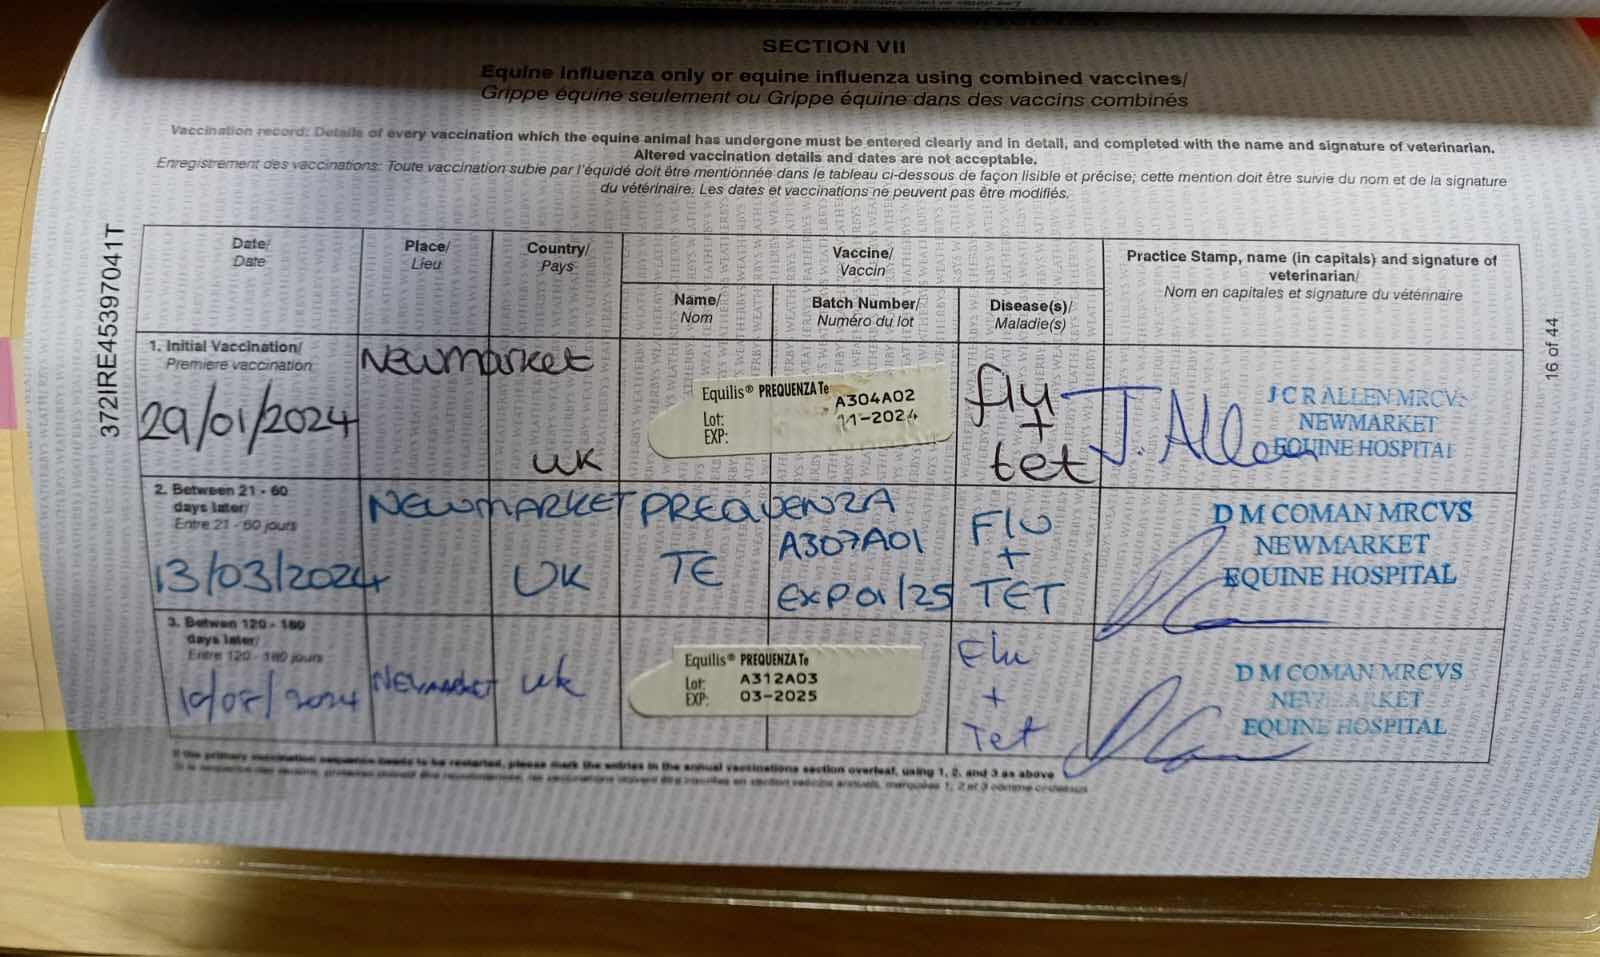 SECTION VII
Equine influenza only or equine influenza using combined vaccines/
Grippe équine seulement ou Grippe équine dans des vaccins combinés
Vaccination record: Details of every vaccination which the equine animal has undergone must be entered clearly and in detail, and completed with the name and signature of veterinarian.
Altered vaccination details and dates are not acceptable.
Enregistrement des vaccinations: Toute vaccination subie par l'équidé doit être mentionnée dans le tableau ci-dessous de façon lisible et précise; cette mention doit être suivie du nom et de la signature
du vétérinaire. Les dates et vaccinations ne peuvent pas être modifiés.
372IRE45397041T
Date/
Date
Place/
Lieu
Country/
Pays
Vaccine/
Vaccin
Name/
Nom
Batch Number/
Numéro du lot
Disease(s)/
Maladie(s)
Practice Stamp, name (in capitals) and signature of
veterinarian/
Nom en capitales et signature du vétérinaire
16 of 44
1. Initial Vaccination/
Première vaccination
29/01/2024
Newmarket
UK
Equilis® PREQUENZA Te
Lot: A304A02
EXP: 11-2024
flu
+
tet
J. Allen
J C R ALLEN MRCVS
NEWMARKET
EQUINE HOSPITAL
2. Between 21 - 60
days later/
Entre 21 - 60 jours
13/03/2024
NEWMARKET
UK
PREQUENZA
TE
A307A01
EXP 01/25
FLU
+
TET
D M COMAN MRCVS
NEWMARKET
EQUINE HOSPITAL
3. Betwen 120 - 180
days later/
Entre 120 - 180 jours
2024
NEWMARKET
UK
Equilis® PREQUENZA Te
Lot: A312A03
EXP: 03-2025
Flu
+
Tet
D M COMAN MRCVS
NEWMARKET
EQUINE HOSPITAL
If the primary vaccination sequence needs to be restarted, please mark the entries in the annual vaccinations section overleaf, using 1, 2, and 3 as above